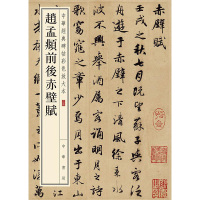 中華經典碑帖彩色放大本
趙孟頫前後赤壁賦
中華書局
赤壁賦
壬戌之秋七月既望蘇子與客泛
舟遊於赤壁之下清風徐來水
波不興舉酒屬客誦明月之詩
歌窈窕之章少焉月出於東山